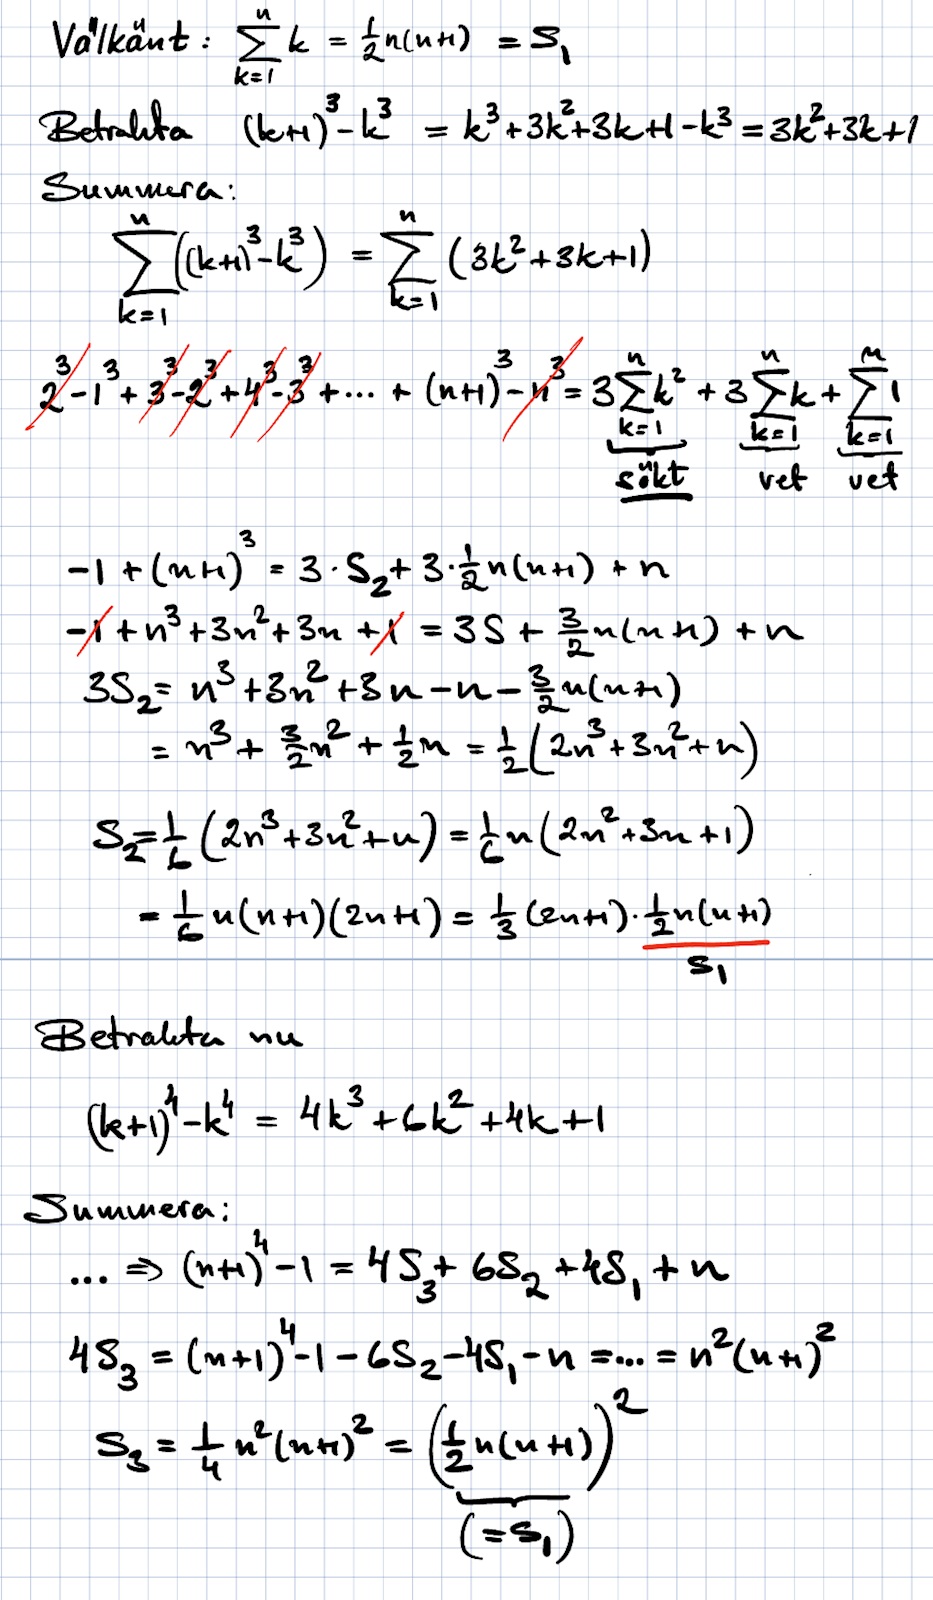 Välkänt: ∑_{k=1}^{n} k = ½n(n+1) = S₁
Betrakta (k+1)³-k³ = k³+3k²+3k+1-k³ = 3k²+3k+1
Summera:
∑_{k=1}^{n} ((k+1)³-k³) = ∑_{k=1}^{n} (3k²+3k+1)
2³-1³+3³-2³+4³-3³+...+(n+1)³-n³ = 3∑_{k=1}^{n} k² + 3∑_{k=1}^{n} k + ∑_{k=1}^{n} 1
sökt vet vet
-1+(n+1)³ = 3·S₂+3·½n(n+1)+n
-1+n³+3n²+3n+1 = 3S+3/2 n(n+1)+n
3S₂ = n³+3n²+3n-n-3/2 n(n+1)
= n³+3/2 n²+½n = ½(2n³+3n²+n)
S₂ = 1/6 (2n³+3n²+n) = 1/6 n(2n²+3n+1)
= 1/6 n(n+1)(2n+1) = 1/3 (2n+1)·½n(n+1)
S₁
Betrakta nu
(k+1)⁴-k⁴ = 4k³+6k²+4k+1
Summera:
... ⇒ (n+1)⁴-1 = 4S₃+6S₂+4S₁+n
4S₃ = (n+1)⁴-1-6S₂-4S₁-n = ... = n²(n+1)²
S₃ = ¼n²(n+1)² = (½n(n+1))²
(=S₁)